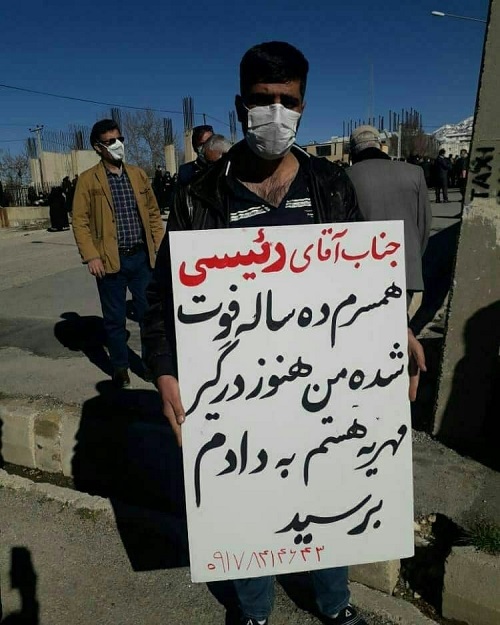 جناب آقای رئیسی
همسرم ده ساله فوت
شده من هنوز درگیر
مهریه هستم به دادم
برسید
۰۹۱۷۸۴۱۴۶۴۳
TAXI